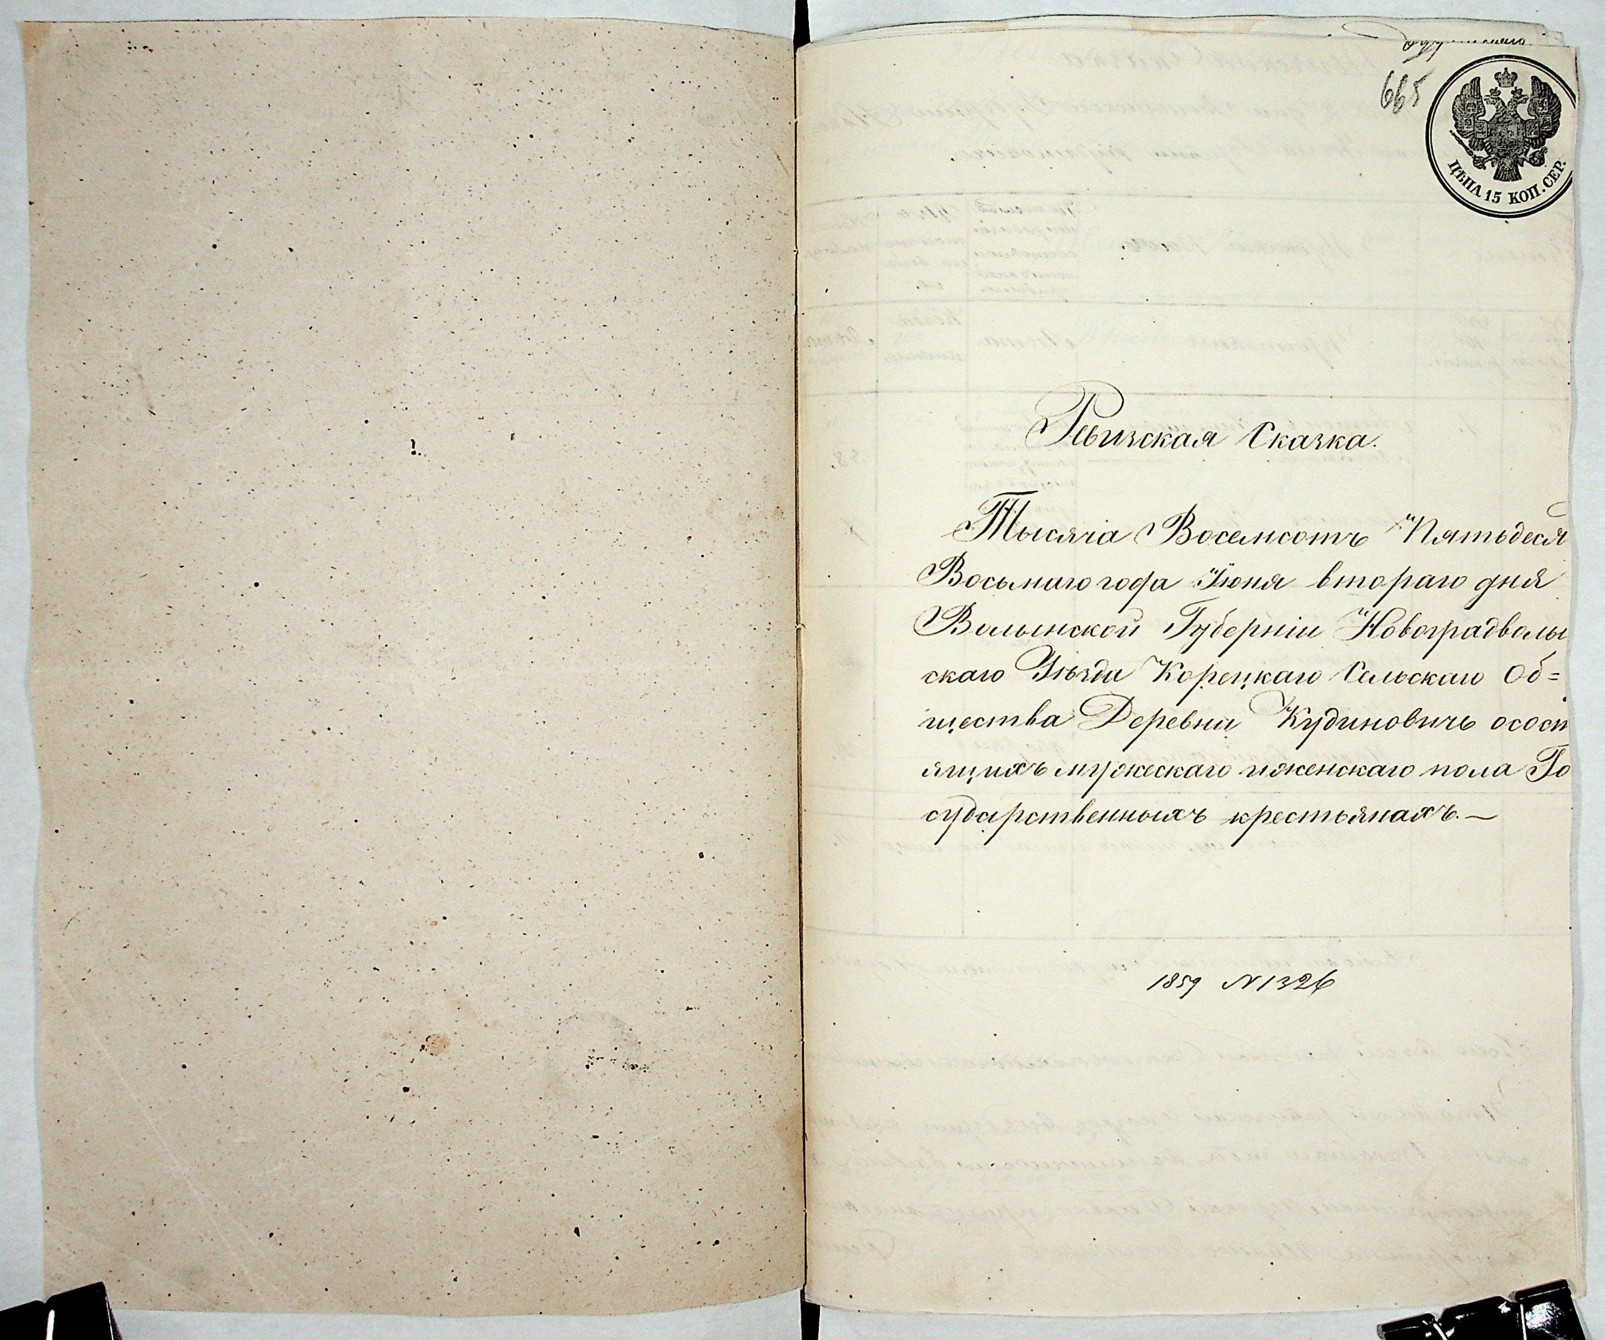 665
ЦѢНА 15 КОП. СЕР.
Ревизская Сказка.
Тысяча Восемсотъ Пятьдеся
Восьмого года Іюня втораго дня
Волынской Губерніи Новоградволы
скаго Уѣзда Корецкаго Сельскаго Об=
щества Деревни Кудиновичь осост
ящихъ мужескаго иженскаго пола Го
сударственныхъ крестьянахъ.—
1859 N 1326